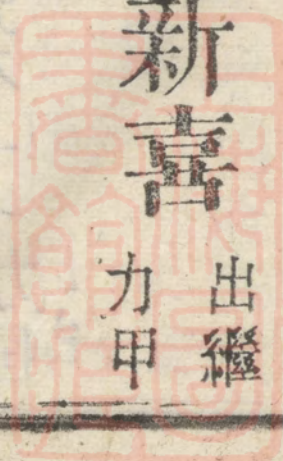 新喜
出繼
力甲